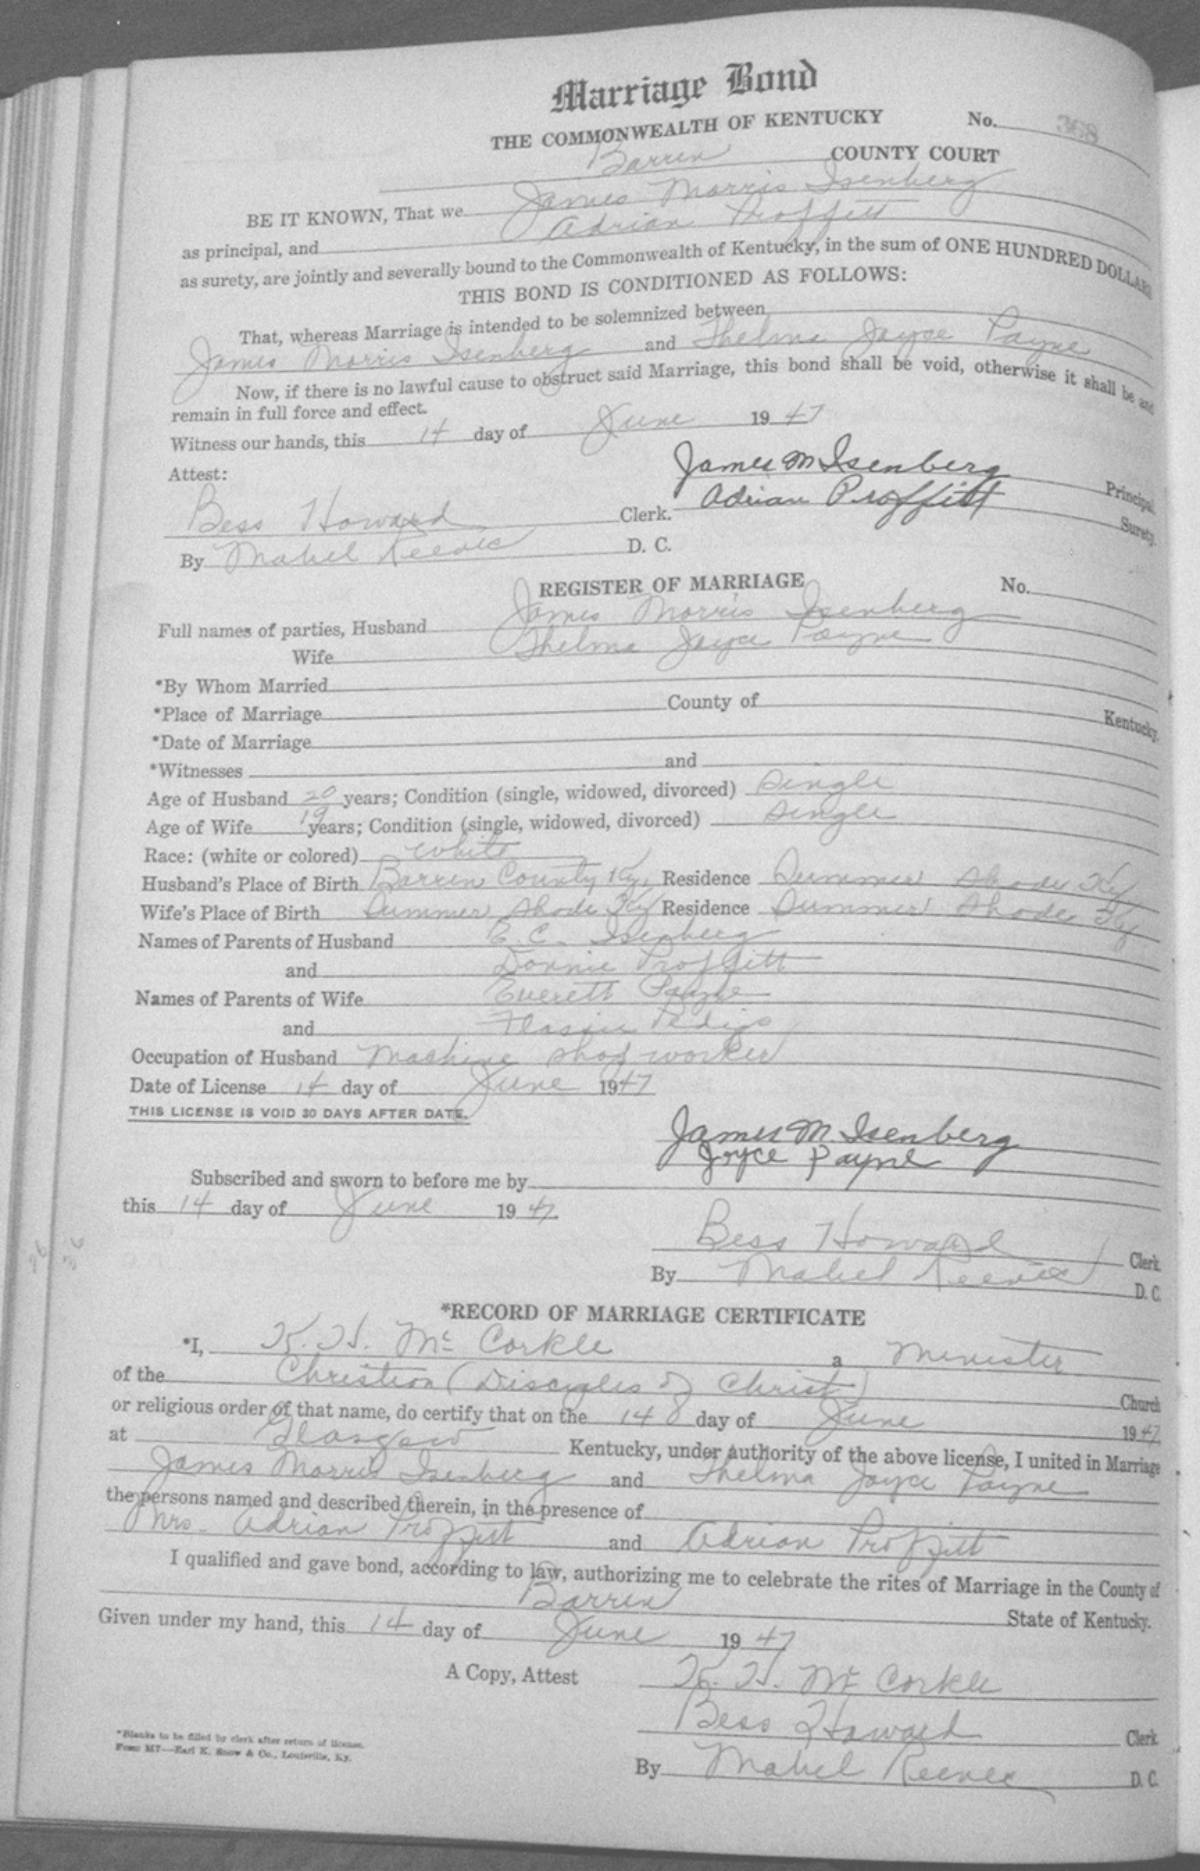 Marriage Bond
THE COMMONWEALTH OF KENTUCKY No. 368
Barren COUNTY COURT
BE IT KNOWN, That we James Morris Isenberg
as principal, and Adrian Proffitt
as surety, are jointly and severally bound to the Commonwealth of Kentucky, in the sum of ONE HUNDRED DOLLARS
THIS BOND IS CONDITIONED AS FOLLOWS:
That, whereas Marriage is intended to be solemnized between
James Morris Isenberg and Thelma Jayce Payne
Now, if there is no lawful cause to obstruct said Marriage, this bond shall be void, otherwise it shall be and
remain in full force and effect.
Witness our hands, this 14 day of June 1947
Attest: James M Isenberg Principal.
Bess Howard Clerk. Adrian Proffitt Surety.
By Mabel Reeves D. C.
REGISTER OF MARRIAGE No.
Full names of parties, Husband James Morris Isenberg
Wife Thelma Jayce Payne
*By Whom Married
*Place of Marriage County of Kentucky.
*Date of Marriage
*Witnesses and
Age of Husband 20 years; Condition (single, widowed, divorced) Single
Age of Wife 19 years; Condition (single, widowed, divorced) Single
Race: (white or colored) White
Husband's Place of Birth Barren County Ky. Residence Summer Shade Ky
Wife's Place of Birth Summer Shade Ky Residence Summer Shade Ky
Names of Parents of Husband E. C. Isenberg
and Donnie Proffitt
Names of Parents of Wife Everett Payne
and Pedigo
Occupation of Husband Machine shop worker
Date of License 14 day of June 1947
THIS LICENSE IS VOID 30 DAYS AFTER DATE.
James M. Isenberg
Joyce Payne
Subscribed and sworn to before me by
this 14 day of June 1947
Bess Howard Clerk
By Mabel Reeves D. C.
26 26
*RECORD OF MARRIAGE CERTIFICATE
*I, K. H. Mc Corkle a Minister
of the Christian (Disciples of Christ) Church
or religious order of that name, do certify that on the 14 day of June 1947
at Glasgow Kentucky, under authority of the above license, I united in Marriage
James Morris Isenberg and Thelma Jayce Payne
the persons named and described therein, in the presence of
Mrs. Adrian Proffitt and Adrian Proffitt
I qualified and gave bond, according to law, authorizing me to celebrate the rites of Marriage in the County of
Barren State of Kentucky.
Given under my hand, this 14 day of June 1947
A Copy, Attest K. H. Mc Corkle
Bess Howard Clerk
By Mabel Reeves D. C.
*Blanks to be filled by clerk after return of license.
Form M7—Earl K. Snow & Co., Louisville, Ky.